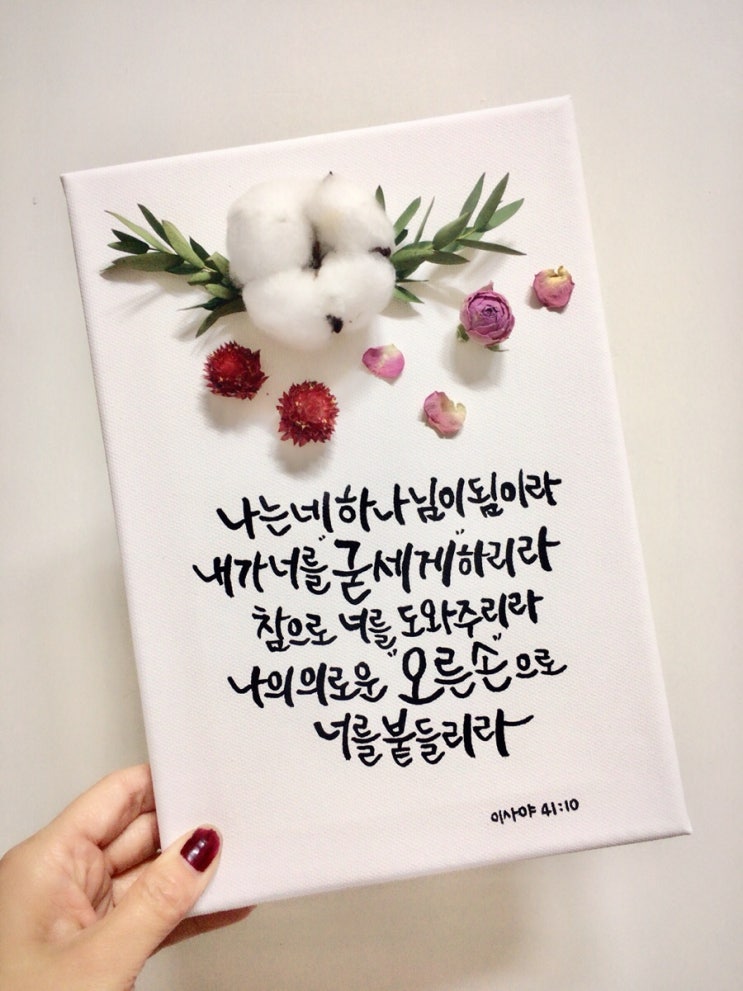 나는 네 하나님이 됨이라
내가 너를 "굳세게" 하리라
참으로 너를 도와주리라
나의 의로운 "오른손"으로
너를 붙들리라
이사야 41:10